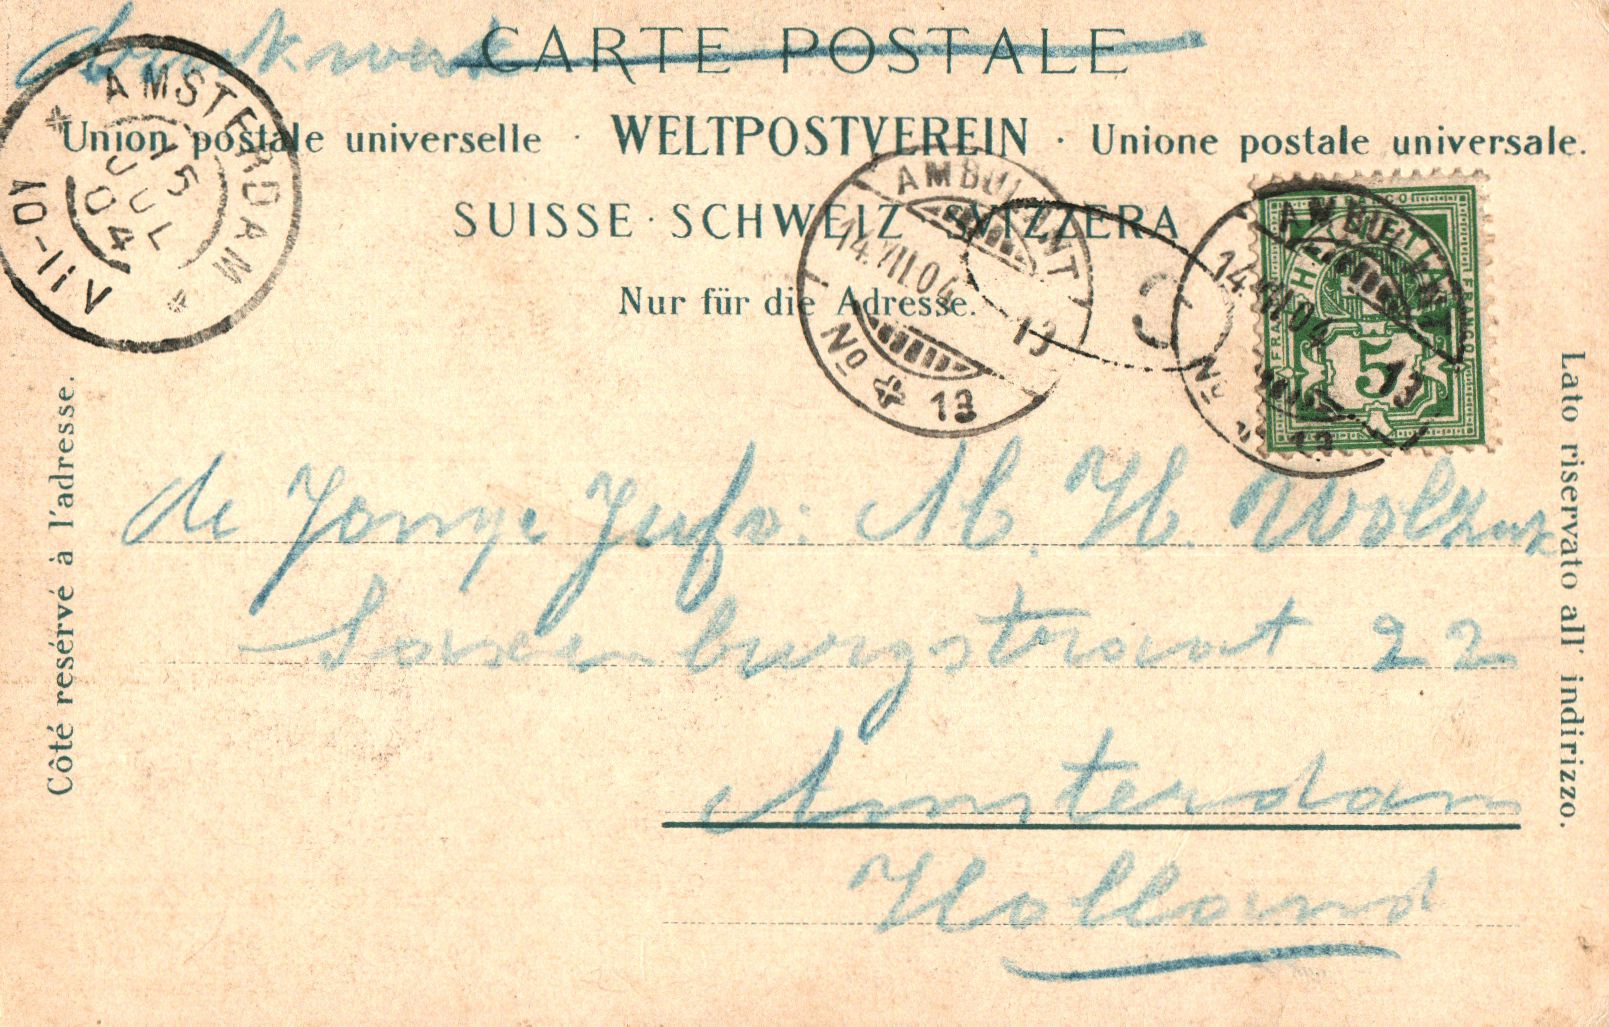 drukwerk
CARTE POSTALE
Union postale universelle · WELTPOSTVEREIN · Unione postale universale.
SUISSE · SCHWEIZ · SVIZZERA
Nur für die Adresse.
AMSTERDAM
15
JUL
04
VII-10
AMBULANT
14.VII.04
13
No 13
AMBULANT
14.VII.04
13
No 13
FRANCO
5
Côté resérvé à l'adresse.
Lato riservato all' indirizzo.
de Jonge Jufvr: M. H.
Saxenburgstraat 22
Amsterdam
Holland